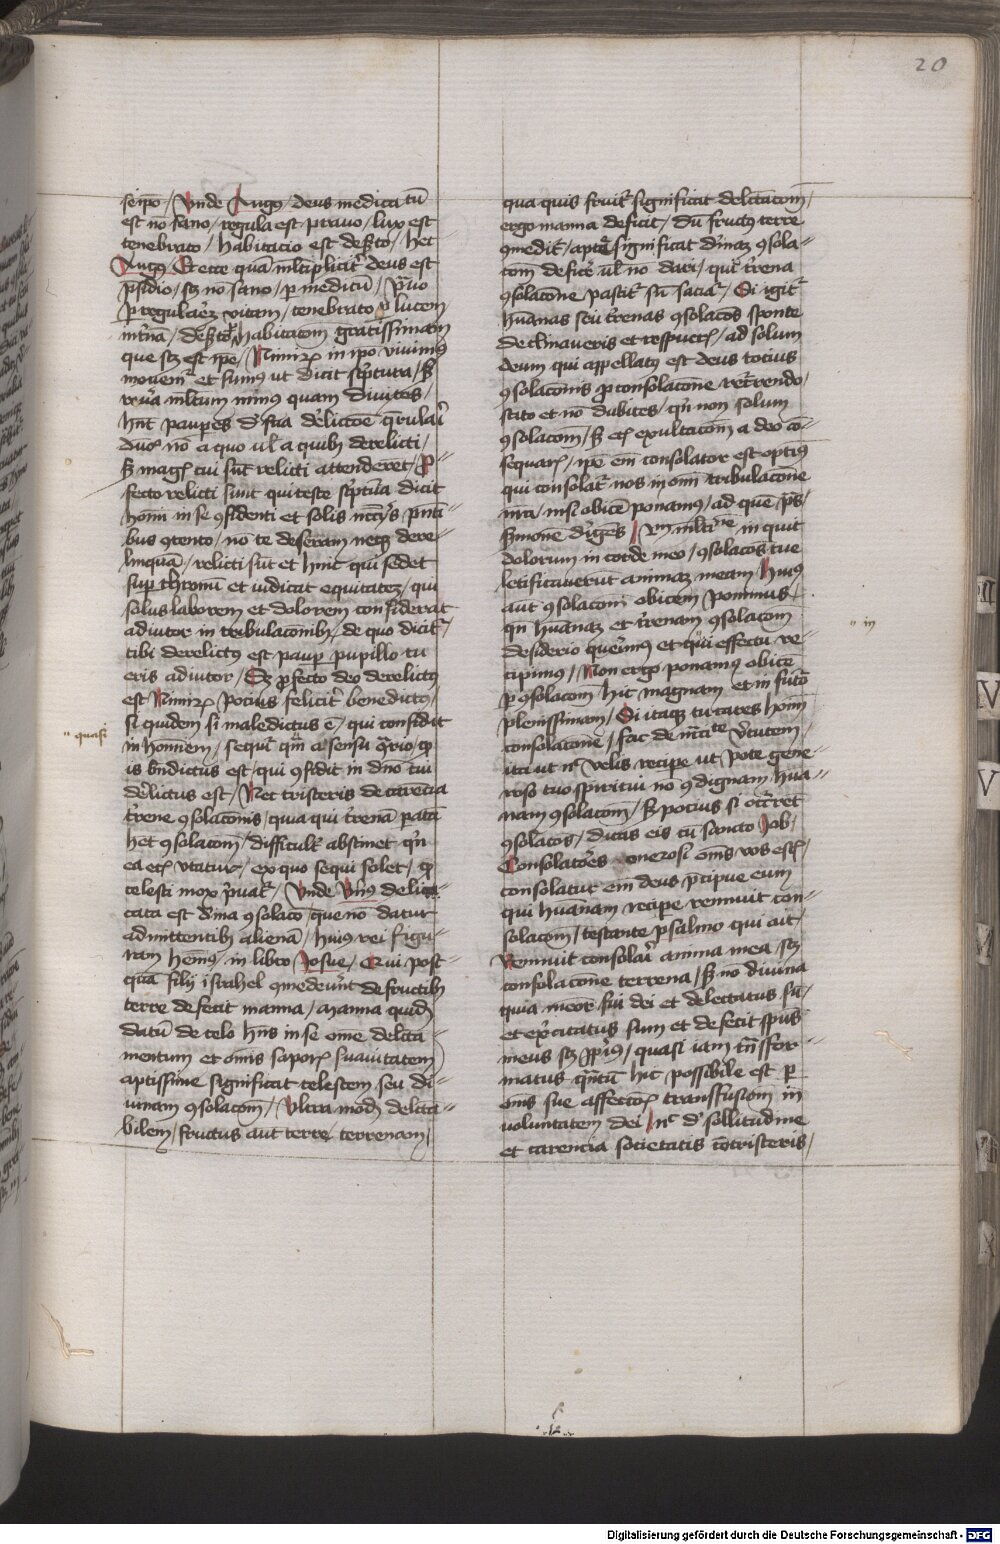 20
seipo / Vnde Augꝰ / deus medicia tū
est no sano / regula est prauo / lux est
tenebrato / habitacio est desto / hec
Augꝰ / Ecce quā multiplicit deus est
psidio / sꝫ no sano / p medicū / prauo
p regulares vitam / tenebrato p lucem
int̄nā / desto habitacōem gratissimam
que sꝫ est ipe / Nimirꝫ in ipo viuimꝰ
mouem̄ et sumꝰ ut dicit scptura / sꝫ
reuā multum minꝰ quam diuites /
hn̄t paupes
duꝫ nō a quo ul a quibꝫ derelicti /
sꝫ magꝭ cui sūt relicti attenderet / Pro-
fecto relicti sunt qui teste scptura dicit
homi in se ꝯfidenti et solis
bus ꝯtento / no te deseram neqꝫ dere-
linquā / relicti sūt et hinc qui sedet
sup thronū et iudicat equitatē / qui
solus laborem et dolorem considerat
adiutor in tribulacōnibꝫ / de quo dicit /
tibi derelictꝰ est paup pupillo tu
eris adiutor / Sꝫ profecto deo derelictꝰ
est Nimirꝫ Pocius felicit benedictꝰ /
si quidem si maledictus ē / qui confidit
" quasi
in hominem / sequit qm̄ a sensu ꝯrio / ꝙ
is bn̄dictus est / qui ꝯfidit in dn̄o cui
delictus est / Nec tristeris de carencia
trene ꝯsolacōnis / quia qui trenā
hec ꝯsolacōm / difficult abstinet qn̄
ea ecꝫ vtatur / ex quo sequi solet / ꝙ
celesti mox puat / Vnde Vmꝰ delica-
cata est diuina ꝯsolaco / que nō datur
admittentibꝫ alienā / huiꝰ rei figu-
ram hem̄ꝰ / in libro Josue / Qui post-
quā filij israhel ꝯmederūt de fructibꝫ
terre defecit manna / Manna quidē
datū de celo hn̄s in se ome delcta-
mentum et omis saporꝫ suauitatem
aptissime significat celestem seu di-
uinam ꝯsolacōm / Vltra modū delcta-
bilem / fructus aut terre / terrenam /
qua quis fruit significat delctacōm /
ergo manna deficit / dū fructꝰ terre
ꝯmedit / apte significat diuinaꝫ ꝯsola-
cōm deficere ul no dari / qui trena
ꝯsolacōne pascit sūt saciat / Si igit
humanas seu trenas ꝯsolacōes sponte
declinaueris et respueris / ad solum
deum qui appellatꝰ est deus tocius
ꝯsolacōnis pro consolacōne recurrendo /
scito et nō dubites / qn̄ non solum
ꝯsolacōm / sꝫ ecꝫ exultacōm a deo cō-
sequaris / ipe em̄ consolator est optimꝰ
qui consolat nos in omi tribulacōne
nra / nisi obicē ponamꝰ / ad quē ps
sermonē dirigēs / Scdm multitudinē inquit
dolorum in corde meo / ꝯsolacōes tue
letificauerūt animaꝫ meam / Huiꝰ
aut ꝯsolacōm obicem ponimus /
qn̄ humanaꝫ et trenam ꝯsolacōm
" in
desiderio querimꝰ et qui effectu re-
cipimus / Non ergo ponamꝰ obicē
p ꝯsolacōm hic magnam et in futuro
plenissimam / Si itaqꝫ tu cares homī
consolacōne / fac de necessitate virtutem /
ita ut nec velis recipe ut pote gene-
roso tuo spiritui nō ꝯdignam huma-
nam ꝯsolacōm / sꝫ pocius si occurrerēt
ꝯsolacōes / dicas eis cū sancto Job /
Consolatores onerosi omes vos estis /
consolatur em̄ deus precipue eum
qui humanam recipe rennuit con-
solacōm / testante psalmo qui ait /
Rennuit consolari anima mea sꝫ
consolacōne terrena / sꝫ no diuina
quia memor fui dei et delectatus sū /
et exercitatus sum et defecit spūs
meus sꝫ ppriꝰ / quasi iam trāsfor-
matus quātū hic possibile est p
omis sue affectōis transfusiōm in
voluntatem dei / Nec de sollitudine
et carencia societatis cōtristeris /
V
V
Digitalisierung gefördert durch die Deutsche Forschungsgemeinschaft - DFG